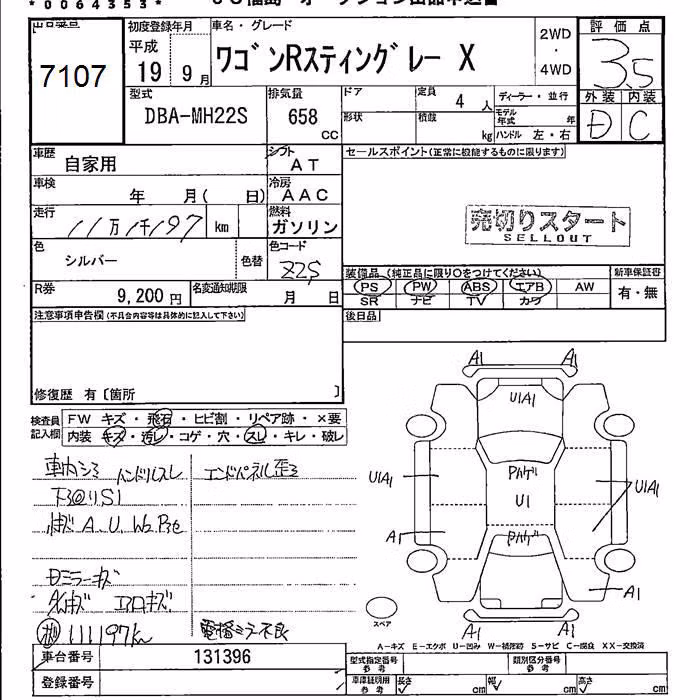 * 0 0 6 4 3 5 3 *
7107
初度登録年月
平成
19 9 月
車名・グレード
ワゴンRスティングレー X
2WD
・
4WD
評価点
3.5
外装 内装
D C
型式
DBA-MH22S
排気量
658
CC
ドア
形状
定員
4 人
積載
kg
ディーラー・並行
モデル年式 年
ハンドル 左・右
車歴
自家用
シフト
A T
セールスポイント(正常に機能するものに限ります)
売切りスタート
SELLOUT
車検
年 月( 日)
冷房
A A C
走行
11万1千197 km
燃料
ガソリン
色
シルバー
色替
色コード
Z2S
R券
9,200 円
名変通知期限
月 日
装備品(純正品に限り○をつけてください)
PS PW ABS エアB AW
SR ナビ TV カワ
新車保証書
有・無
後日品
注意事項申告欄(不具合内容等は具体的に記入して下さい)
修復歴 有〔箇所 〕
検査員
記入欄
FW キズ・飛石・ヒビ割・リペア跡・×要
内装 キズ・汚レ・コゲ・穴・スレ・キレ・破レ
車内シミ ハンドルスレ
エンドパネル歪ミ
下回りS1
Dミラーキズ
エアロキズ
111197km
電格ミラー不良
A1 A1
U1A1
Pハゲ
U1A1 U1 U1A1
A1 Pハゲ
A1
スペア
A1 A1
A-キズ E-エクボ U-凹み W-補修跡 S-サビ C-腐食 XX-交換済
車台番号 131396
登録番号
型式指定番号
参考
類別区分番号
参考
車庫証明用
参考
長さ cm 幅 cm 高さ cm